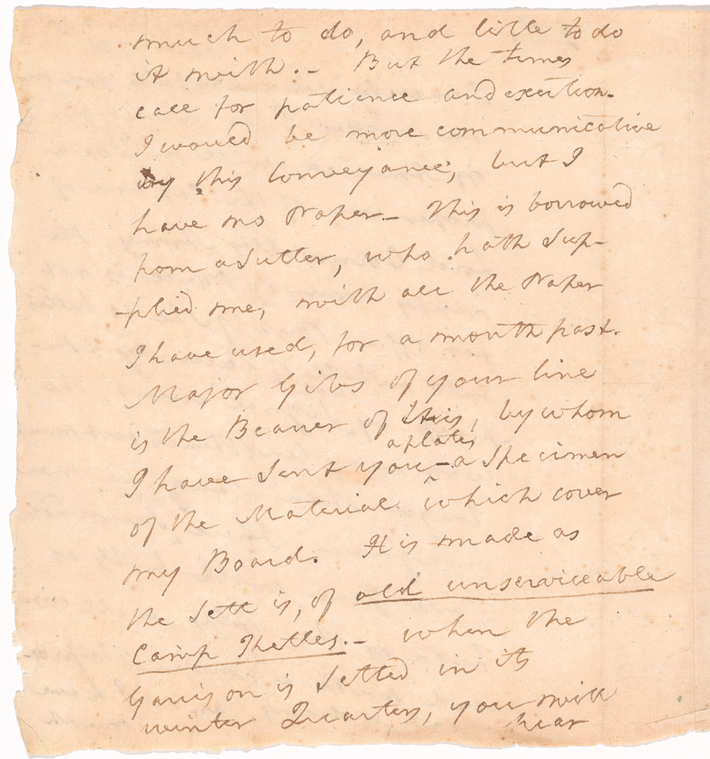 much to do, and little to do
it with.- But the times
call for patience and exertion.
I would be more communicative
by this Conveyance, but I
have no Paper.- This is borrowed
from a Sutler, who hath Sup-
plied me, with all the Paper
I have used, for a month past.
Major Gibs of your line
is the Bearer of this, by whom
I have Sent you - a Specimen
a plate,
of the Material which cover
my Board. It is made as
the Sett is, of old unserviceable
Camp Kettles.- when the
Garrison is Setled in its
winter Quarters, you will
hear